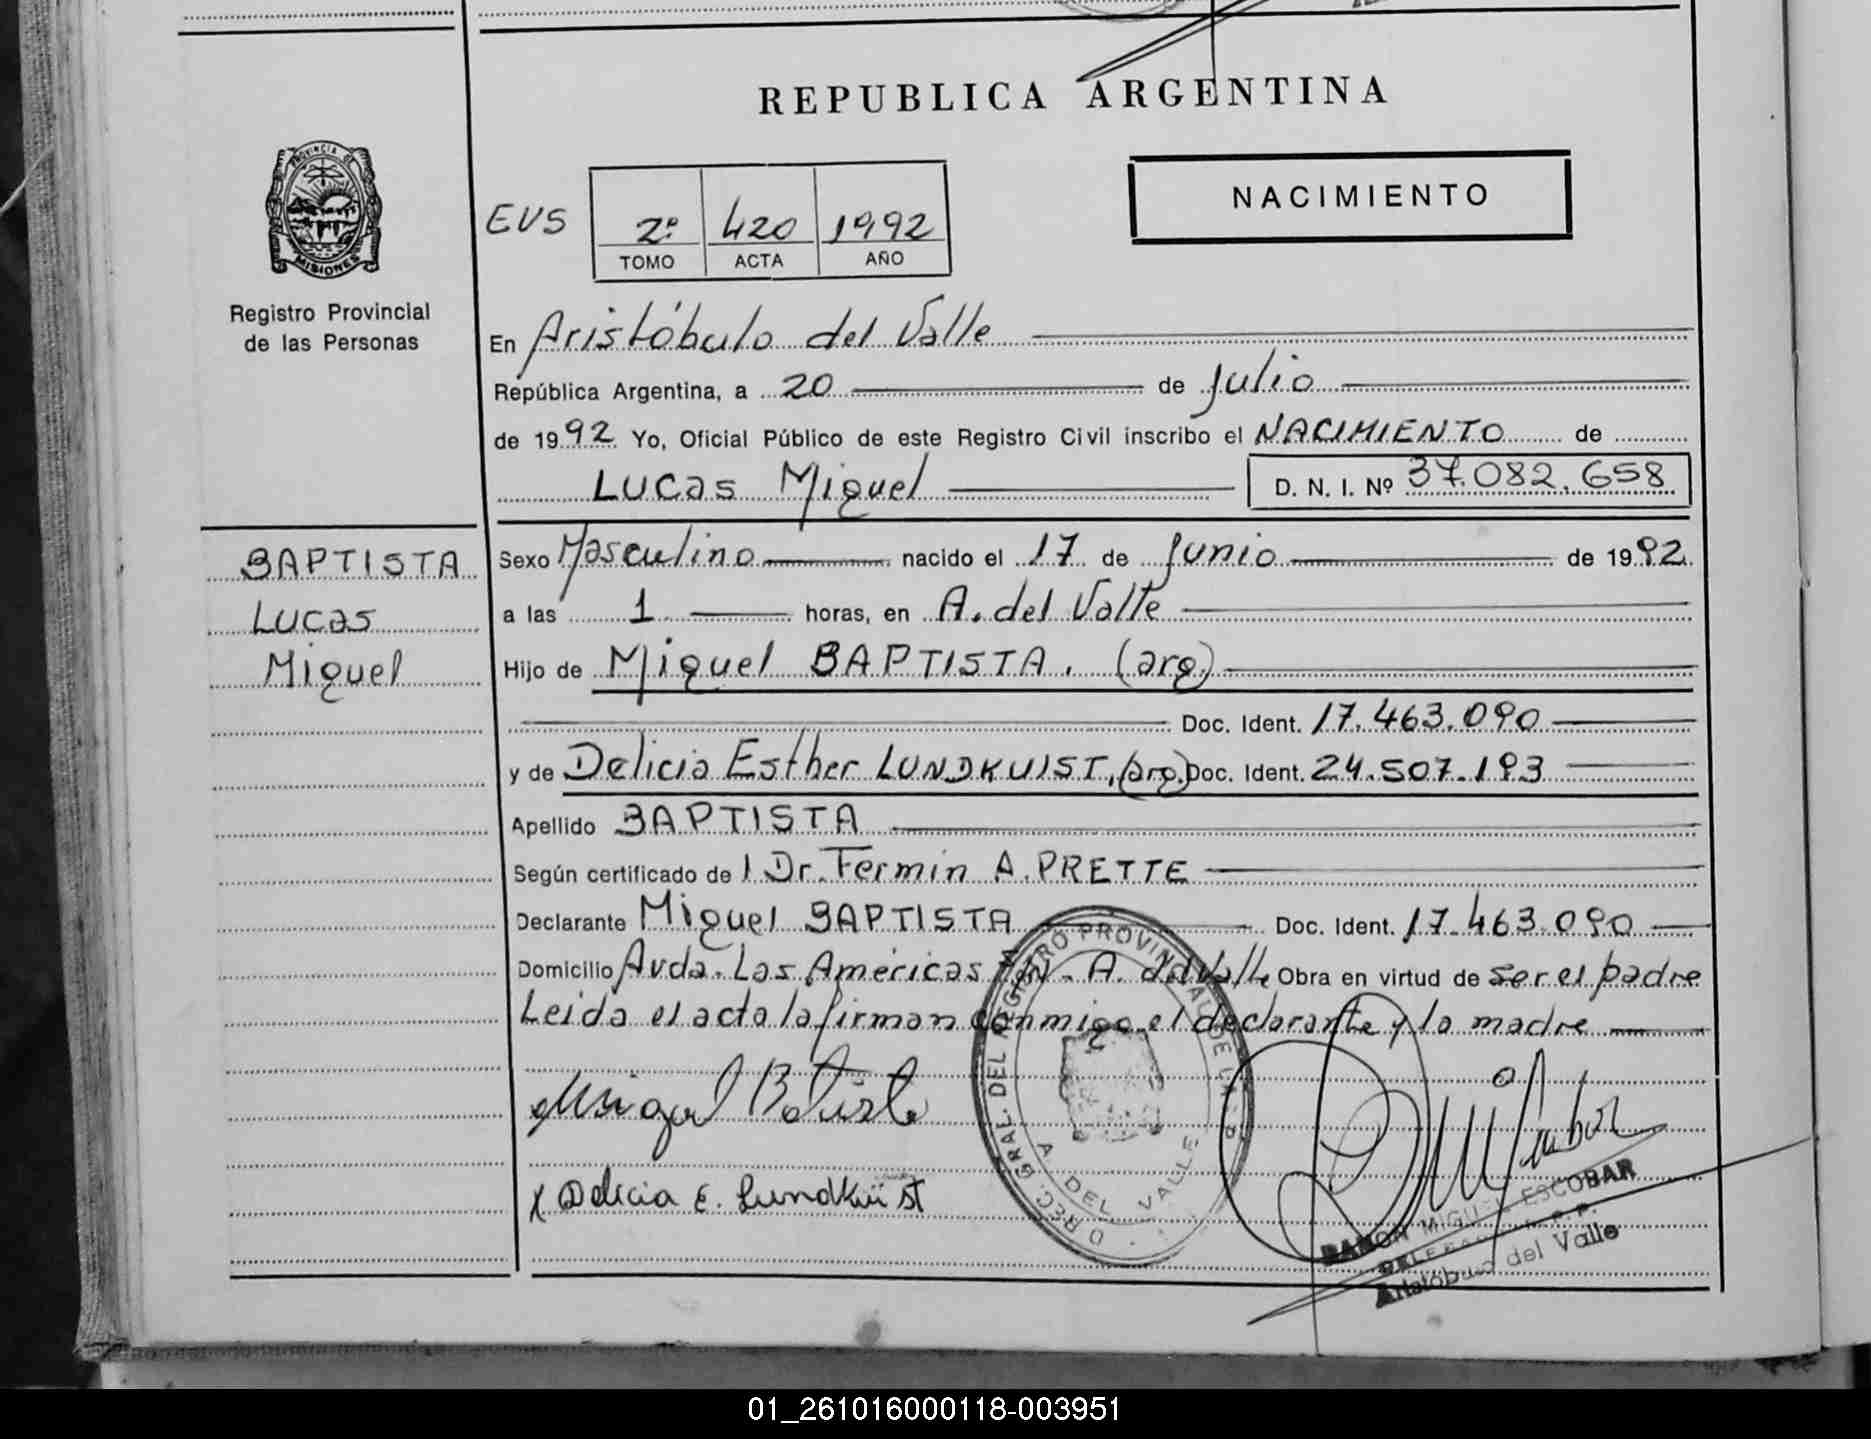 REPUBLICA ARGENTINA
PROVINCIA DE
MISIONES
Registro Provincial
de las Personas
EVS
2º 420 1992
TOMO ACTA AÑO
NACIMIENTO
En Aristóbulo del Valle
República Argentina, a 20 de Julio
de 1992 Yo, Oficial Público de este Registro Civil inscribo el NACIMIENTO de
Lucas Miguel D. N. I. Nº 37.082.658
BAPTISTA
Lucas
Miguel
Sexo Masculino nacido el 17 de Junio de 1992
a las 1 horas, en A. del Valle
Hijo de Miguel BAPTISTA. (arg.)
Doc. Ident. 17.463.090
y de Delicia Esther LUNDKUIST, (arg.) Doc. Ident. 24.507.193
Apellido BAPTISTA
Según certificado de l Dr. Fermin A. PRETTE
Declarante Miguel BAPTISTA Doc. Ident. 17.463.090
Domicilio Avda. Las Américas S/N - A. del Valle Obra en virtud de ser el padre
Leida el acta la firman conmigo el declarante y la madre
Miguel Batista
x Delicia E. Lundkuist
A. DEL VALLE
RAMON MIGUEL ESCOBAR
Aristóbulo del Valle
01_261016000118-003951